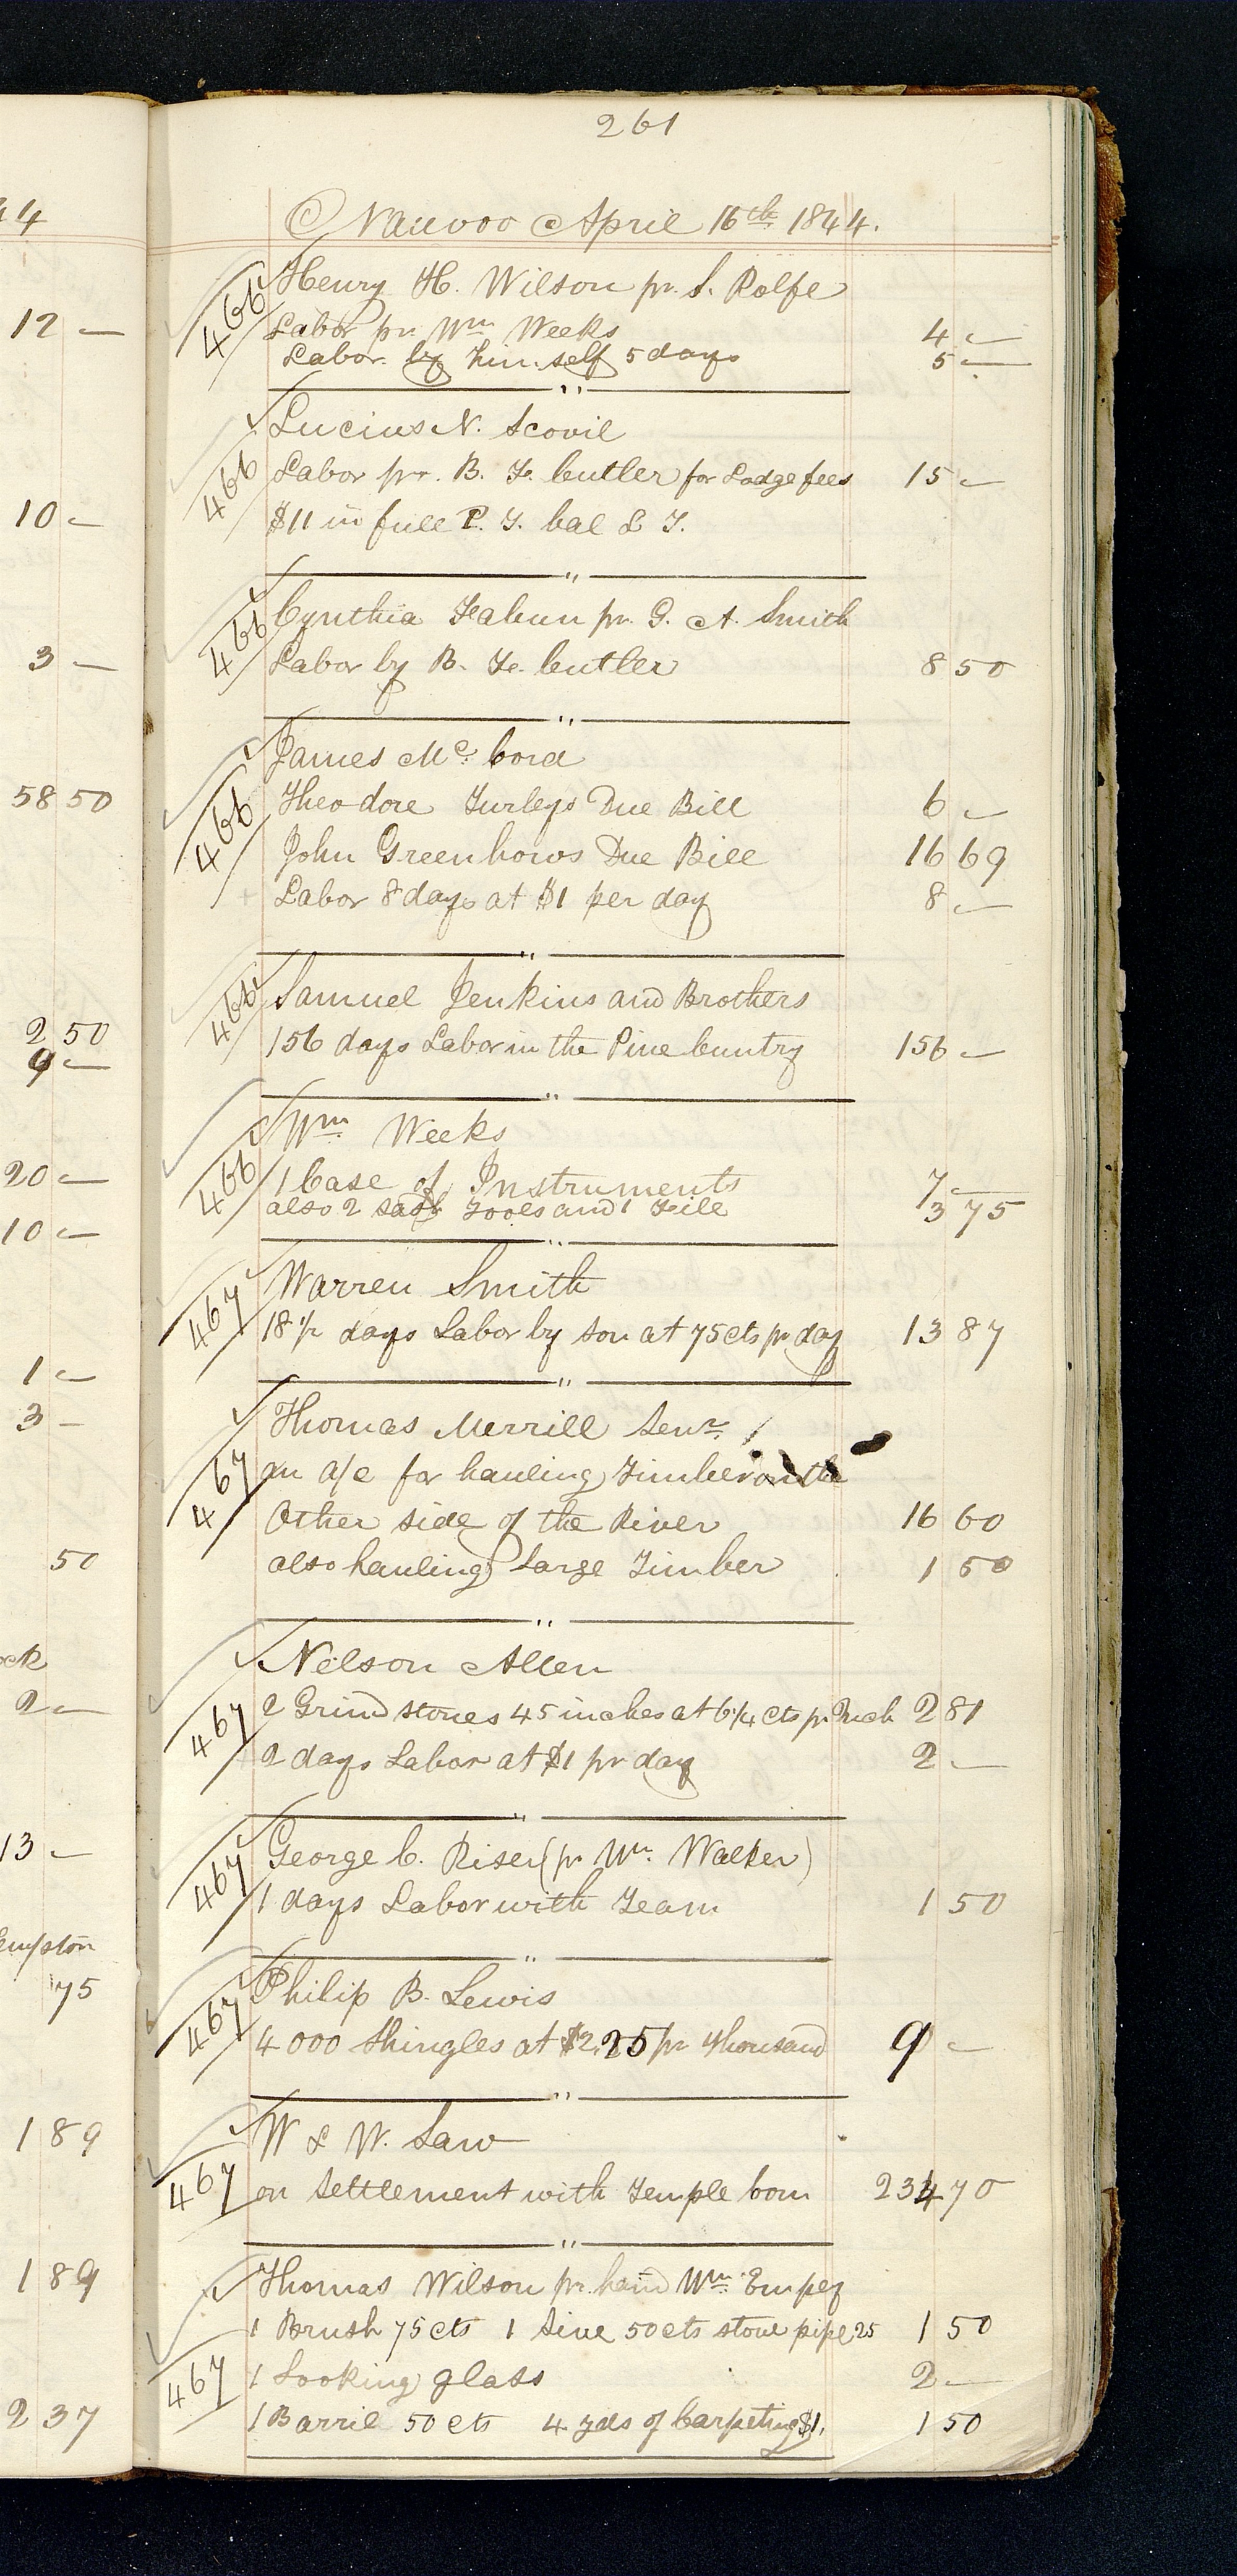 261
Nauvoo April 16th 1844.
44
466
Henry H. Wilson pr. S. Rolfe
12 —
Labor pr Wm Weeks 4 —
Labor by himself 5 days 5 —
"
Lucius N. Scovil
466
Labor pr. B. F. Cutler for Lodge fees 15 —
10 —
$11 in full P. T. bal L T.
"
466
Cynthia Fabun pr. G. A. Smith
3 —
Labor by B. F. Cutler 8 50
"
James Mc. Cord
58 50
466
Theodore Turleys Due Bill 6 —
John Greenhows Due Bill 16 69
Labor 8 days at $1 per day 8 —
"
466
Samuel Jenkins and Brothers
2 50
156 days Labor in the Pine Cuntry 156 —
9 —
"
Wm Weeks
20 —
466
1 Case of Instruments 7 —
also 2 sash Tools and 1 File 3 75
10 —
"
467
Warren Smith
18 1/2 days Labor by son at 75 cts pr day 13 87
1 —
"
3 —
Thomas Merrill Senr.
467
an a/c for hauling Timber on the
Other side of the River 16 60
50
also hauling Large Timber 1 50
"
ock
Nelson Allen
2 —
467
2 Grind stones 45 inches at 6 1/4 cts pr Inch 2 81
2 days Labor at $1 pr day 2 —
"
13 —
467
George C. Riser (pr Wm. Walker)
1 days Labor with Team 1 50
"
empston
75
467
Philip B. Lewis
4000 Shingles at $2.25 pr thousand 9 —
"
1 89
W & W. Law
467
on Settlement with Temple Com 234 70
"
1 89
Thomas Wilson pr. hand Wm. Empey
1 Brush 75 cts 1 Sive 50 cts stove pipe 25 1 50
467
1 Looking glass 2 —
2 37
1 Barril 50 cts 4 yds of Carpeting $1. 1 50